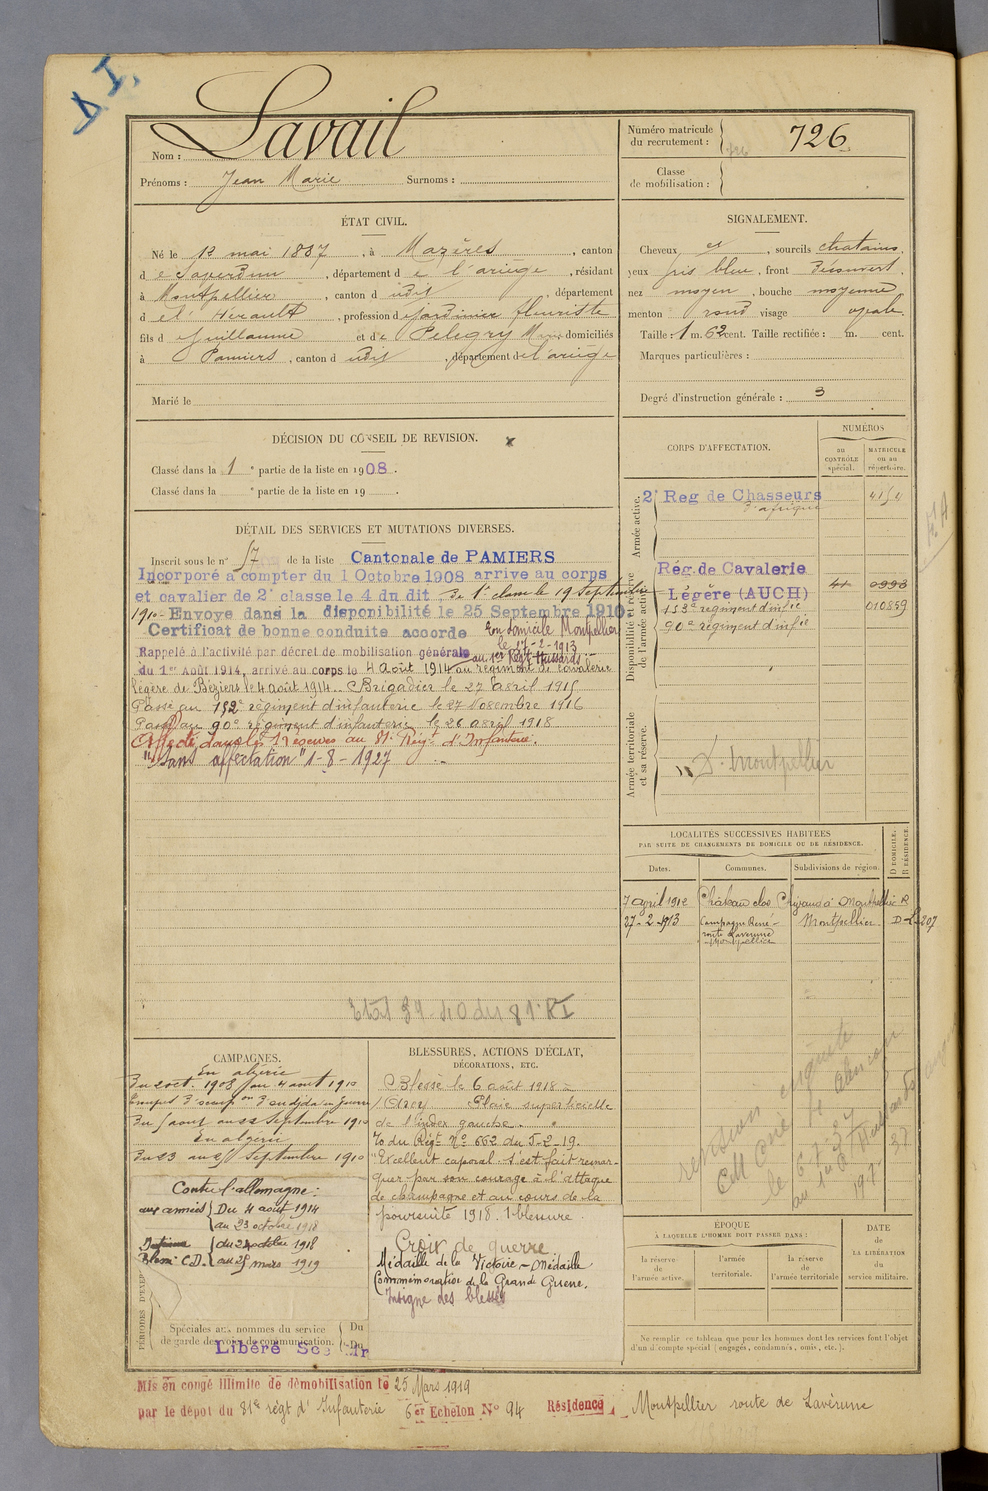 D I.
Lavail
Nom :
Prénoms : Jean Marie Surnoms :
Numéro matricule
du recrutement : 726
Classe
de mobilisation :
ÉTAT CIVIL.
Né le 12 mai 1887, à Mazères, canton
de Saverdun, département de l'ariège, résidant
à Montpellier, canton d udit, département
d e l'Hérault, profession de jardinier fleuriste
fils d Guillaume et d'e Pelegry Marie domiciliés
à Pamiers, canton d udit, département de l'ariège
Marié le
SIGNALEMENT.
Cheveux et, sourcils chatains,
yeux gris bleu, front découvert,
nez moyen, bouche moyenne
menton rond visage ovale.
Taille : 1 m. 62 cent. Taille rectifiée : m. cent.
Marques particulières :
Degré d'instruction générale : 3
DÉCISION DU CONSEIL DE REVISION. x
Classé dans la 1e partie de la liste en 1908.
Classé dans la e partie de la liste en 19 .
DÉTAIL DES SERVICES ET MUTATIONS DIVERSES.
Inscrit sous le n° 57 de la liste Cantonale de PAMIERS
Incorporé à compter du 1 Octobre 1908 arrive au corps
et cavalier de 2e classe le 4 du dit de 1e classe le 19 Septembre
1910 - Envoye dans la disponibilité le 25 Septembre 1910.
Certificat de bonne conduite accorde Son domicile Montpellier
le 27-2-1913
Rappelé à l'activité par décret de mobilisation générale au 1er Régt Hussards
du 1er Août 1914, arrivé au corps le 4 août 1914 au regiment de cavalerie
légère de Béziers le 4 août 1914. Brigadier le 27 avril 1915
Passé au 152e régiment d'infanterie le 27 novembre 1916
Passé au 90e régiment d'infanterie le 26 avril 1918
Affecté dans les réserves au 81e Régt d'Infanterie.
"Sans affectation" 1-8-1927
Etat 39-40 du 81e RI
CORPS D'AFFECTATION.
NUMÉROS
au
CONTRÔLE
spécial.
MATRICULE
ou au
répertoire.
Armée active.
2e Reg de Chasseurs 4154
d'afrique
Disponibilité et réserve
de l'armée active.
Rég. de Cavalerie
Légère (AUCH) 0993
152e regiment d'infie 010859
90e regiment d'infie
Armée territoriale
et sa réserve.
D. Montpellier
LOCALITÉS SUCCESSIVES HABITÉES
PAR SUITE DE CHANGEMENTS DE DOMICILE OU DE RÉSIDENCE.
Dates. Communes. Subdivisions de région. D DOMICILE. R RÉSIDENCE.
7 avril 1912 Château clos Montpellier R
27-2-1913 Campagne René- Montpellier D-
route Laverune
Montpellier
CAMPAGNES.
En algérie
Du 2 oct. 1908 au 4 aout 1910
Du 5 aout au 22 Septembre 1910
En algérie
Du 23 au 25 Septembre 1910
Contre l'allemagne :
aux armées { Du 4 août 1914
au 23 octobre 1918
Intérieur { du 24 octobre 1918
Blessé C.D. { au 25 mars 1919
Spéciales aux hommes du service
de garde des voies de communication. { Du
Du
Libéré Ser
BLESSURES, ACTIONS D'ÉCLAT,
DÉCORATIONS, ETC.
Blessé le 6 août 1918 =
Plaie superficielle
de l'index gauche.
O du Régt No 662 du 5-2-19.
"Excellent caporal. S'est fait remar-
quer par son courage à l'attaque
de champagne et au cours de la
poursuite 1918. 1 blessure.
Croix de guerre
Médaille de la Victoire - Médaille
Commémorative de la Grande Guerre.
Insigne des blessés
ÉPOQUE
À LAQUELLE L'HOMME DOIT PASSER DANS :
la réserve
de
l'armée active.
l'armée
territoriale.
la réserve
de
l'armée territoriale
DATE
de
LA LIBÉRATION
du
service militaire.
Ne remplir ce tableau que pour les hommes dont les services font l'objet
d'un décompte spécial (engagés, condamnés, omis, etc.).
Mis en congé illimite de démobilisation le 25 Mars 1919
par le dépôt du 81e régt d'Infanterie 6er Echelon No 94 Résidence Montpellier route de Lavérune